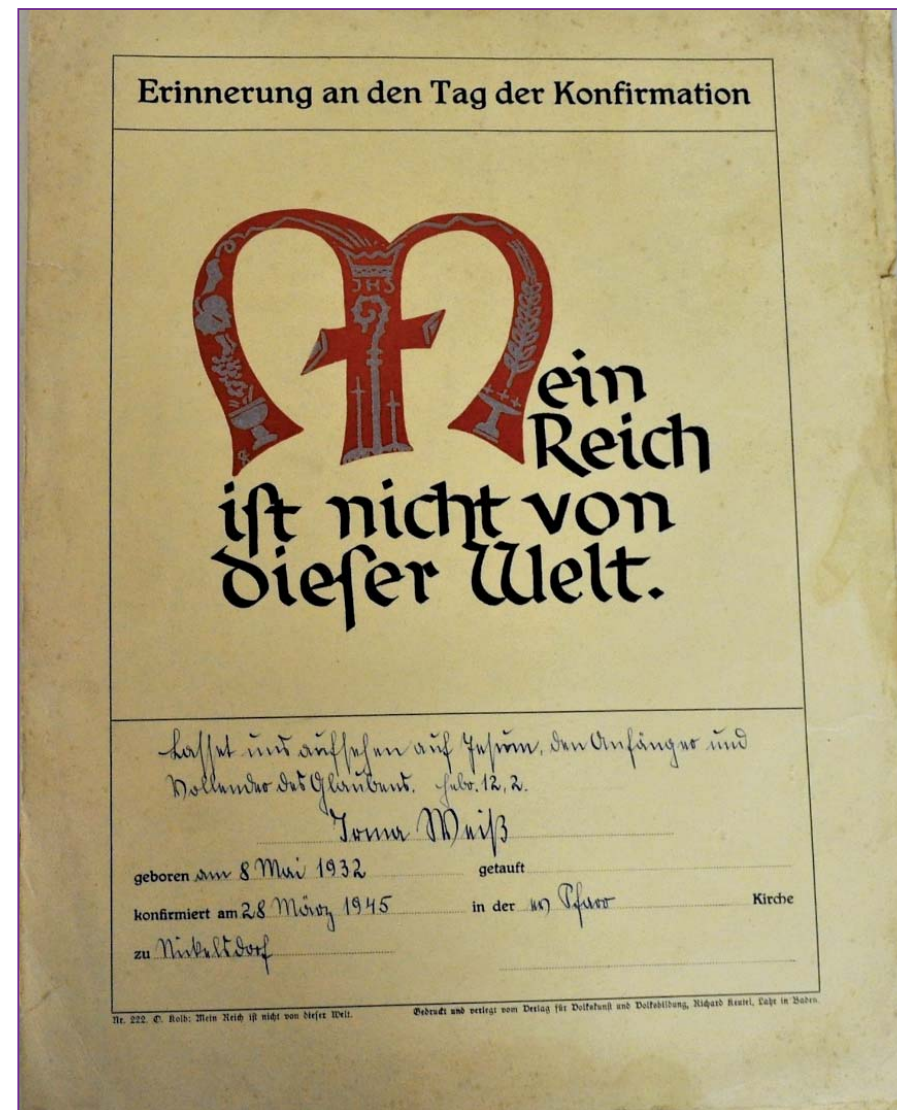 Erinnerung an den Tag der Konfirmation
JHS
Mein
Reich
iſt nicht von
dieſer Welt.
Laſſet uns aufſehen auf Jeſum, den Anfänger und
Vollender des Glaubens. Hebr. 12, 2.
Irma Weiß
geboren am 8 Mai 1932 getauft
konfirmiert am 28 März 1945 in der ev Pfarr Kirche
zu Nickelsdorf
Nr. 222. O. Kolb: Mein Reich iſt nicht von dieſer Welt. Gedruckt und verlegt vom Verlag für Volkskunſt und Volksbildung, Richard Keutel, Lahr in Baden.